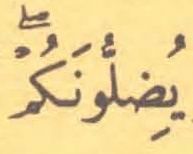 يُضِلُّونَكُمْۖ